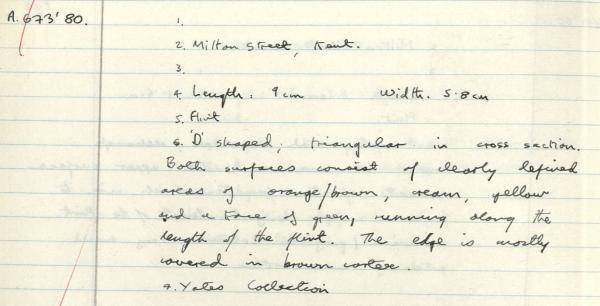 A.673'80.
1.
2. Milton Street, Kent.
3.
4. Length. 9cm Width. 5.8cm
5. Flint
6. 'D' shaped, triangular in cross section.
Both surfaces consist of clearly defined
areas of orange/brown, cream, yellow
and a trace of green, running along the
length of the flint. The edge is mostly
covered in brown cortex.
7. Yates Collection